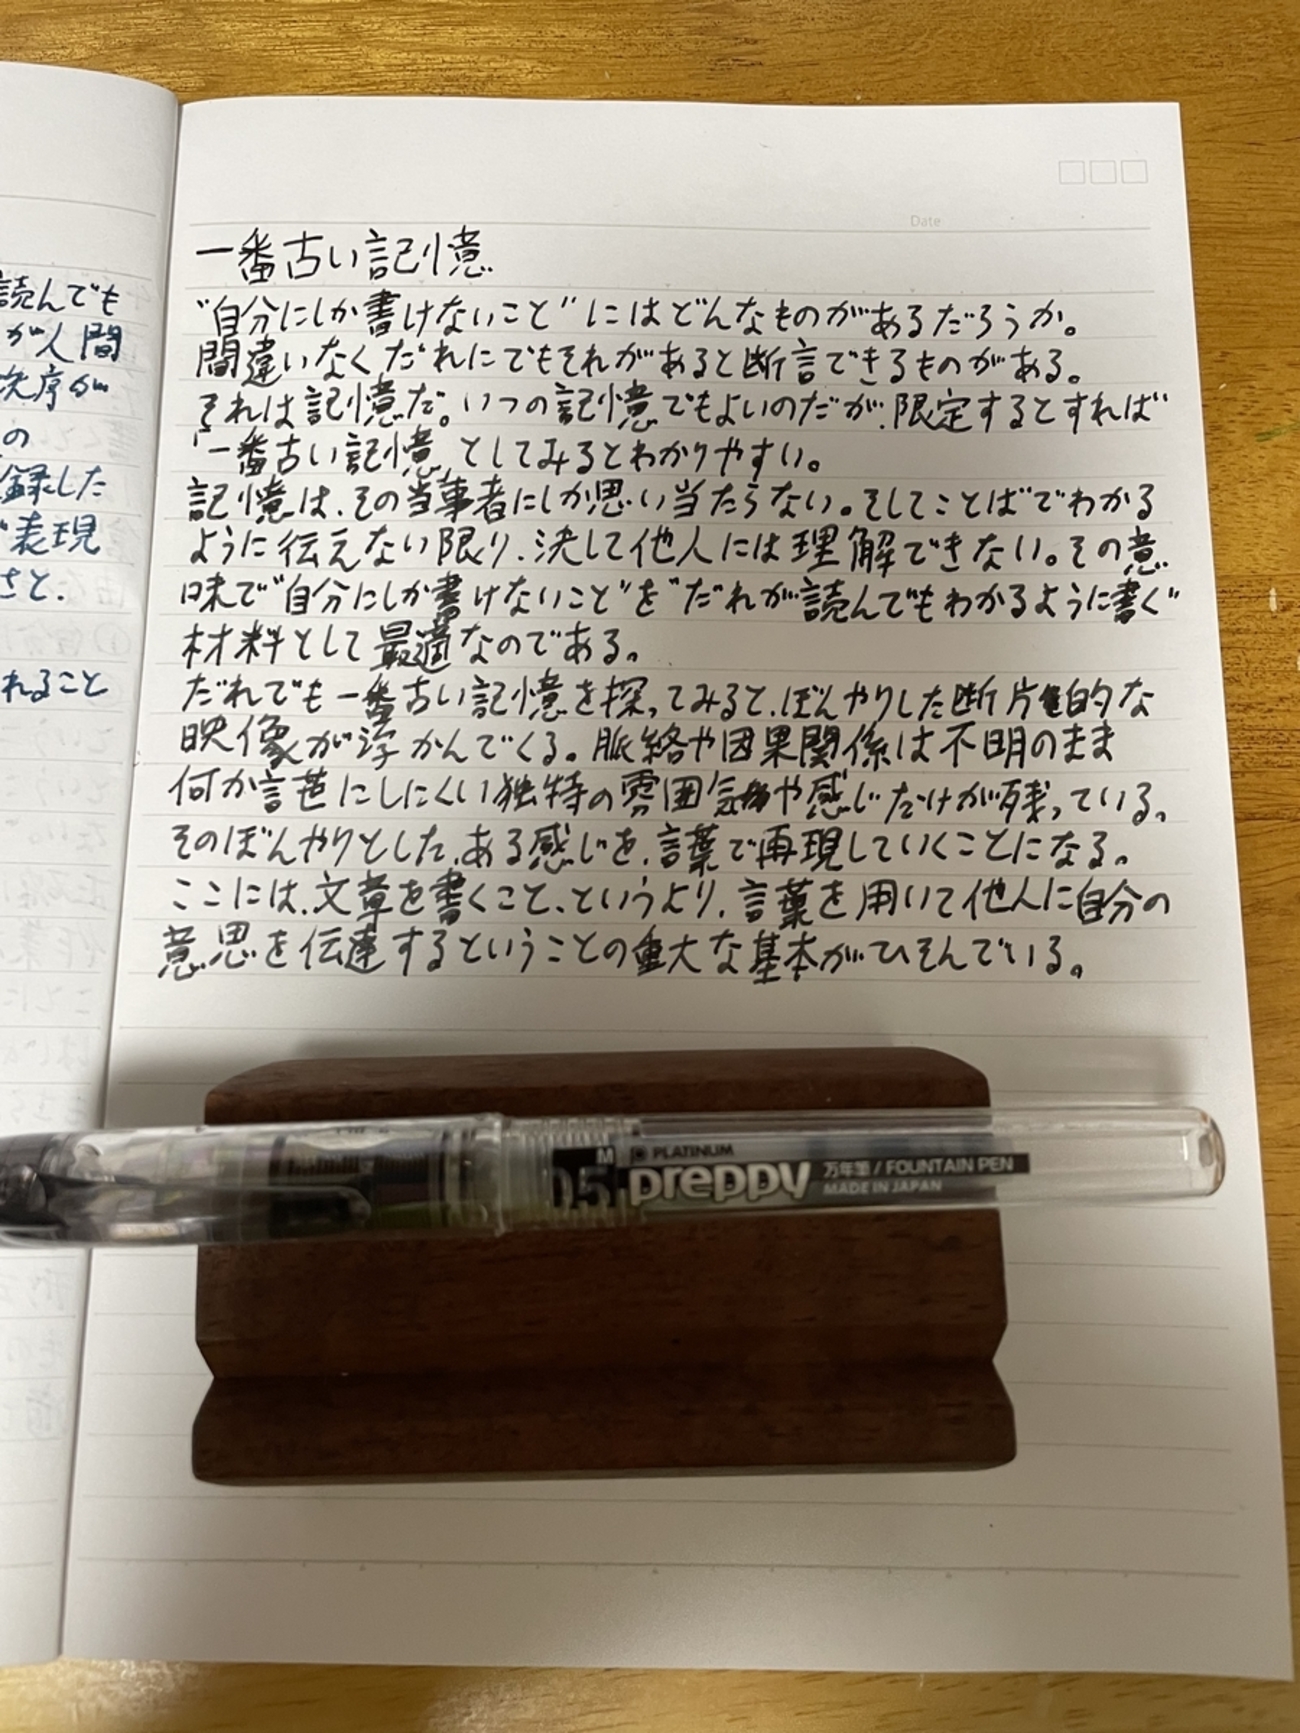 読んでも
が人間
次序が
の
録した
表現
さと、
れること
Date
一番古い記憶
"自分にしか書けないこと"にはどんなものがあるだろうか。
間違いなくだれにでもそれがあると断言できるものがある。
それは記憶だ。いつの記憶でもよいのだが、限定するとすれば
「一番古い記憶」としてみるとわかりやすい。
記憶は、その当事者にしか思い当たらない。そしてことばでわかる
ように伝えない限り、決して他人には理解できない。その意
味で"自分にしか書けないこと"を"だれが読んでもわかるように書く"
材料として最適なのである。
だれでも一番古い記憶を探ってみると、ぼんやりした断片的な
映像が浮かんでくる。脈絡や因果関係は不明のまま
何か言葉にしにくい独特の雰囲気や感じだけが残っている。
そのぼんやりとした、ある感じを、言葉で再現していくことになる。
ここには、文章を書くこと、というより、言葉を用いて他人に自分の
意思を伝達するということの重大な基本がひそんでいる。
05 M PLATINUM
preppy 万年筆 / FOUNTAIN PEN
MADE IN JAPAN